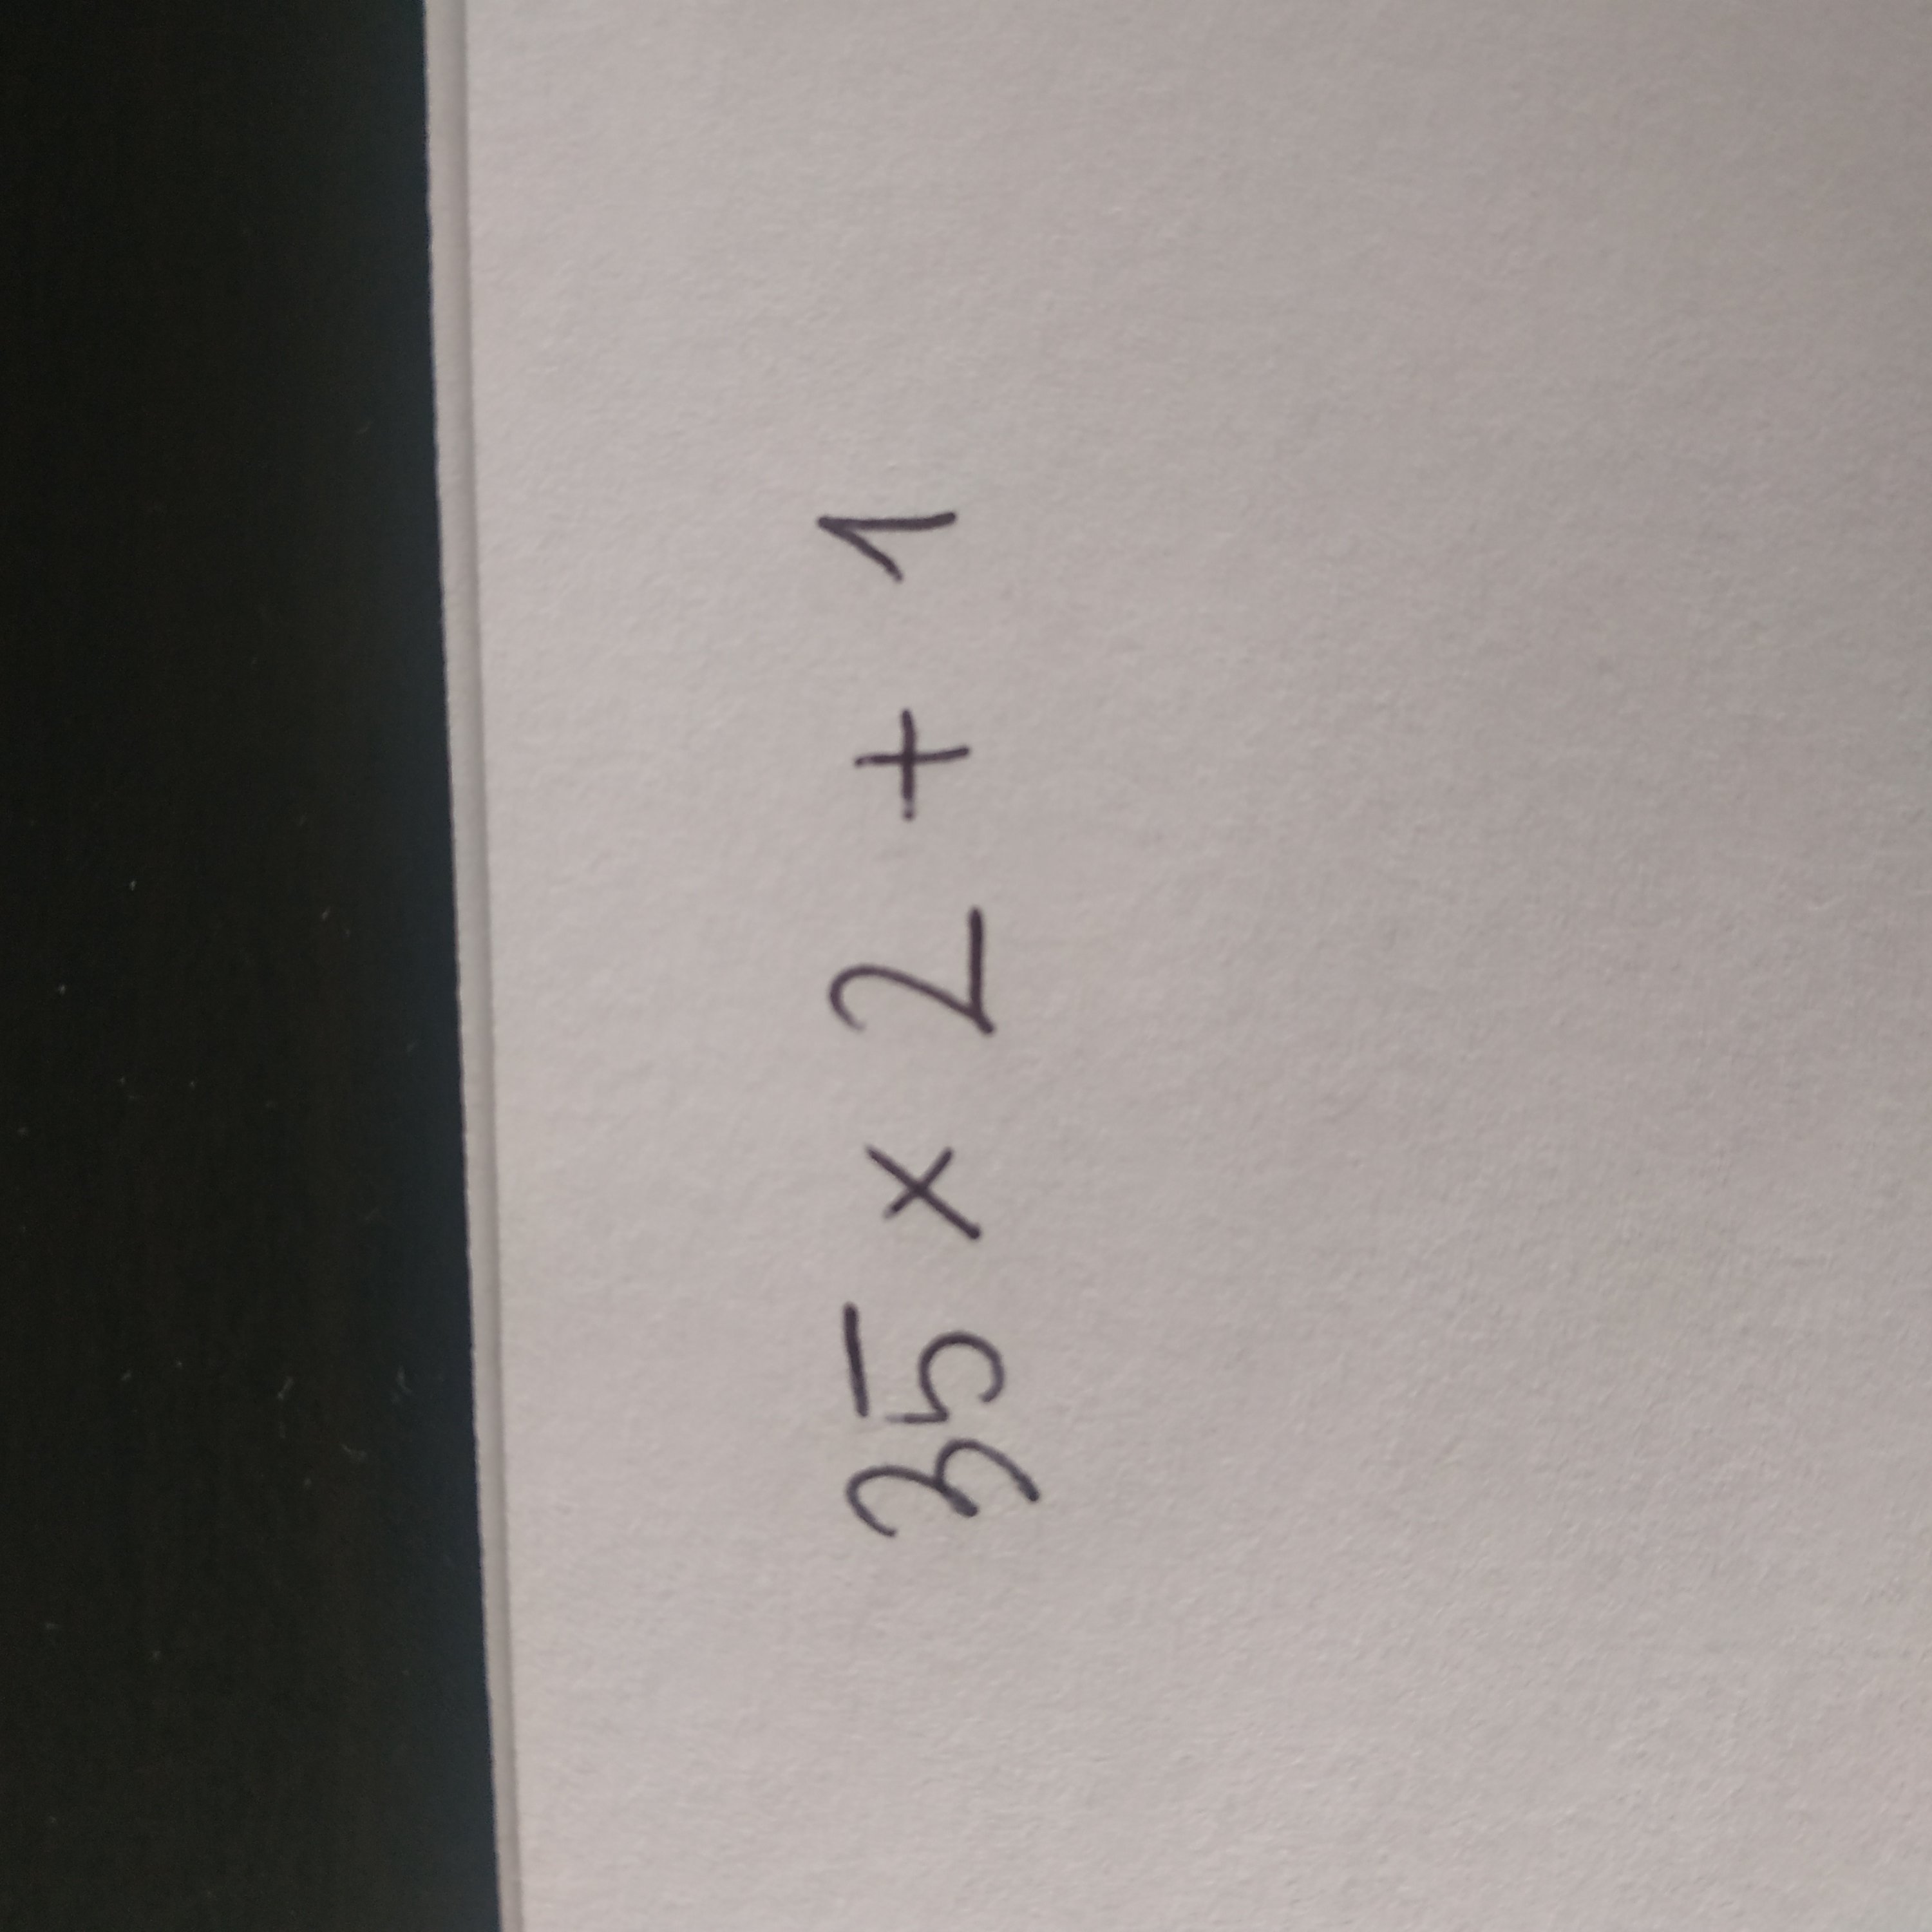 35 × 2 + 1